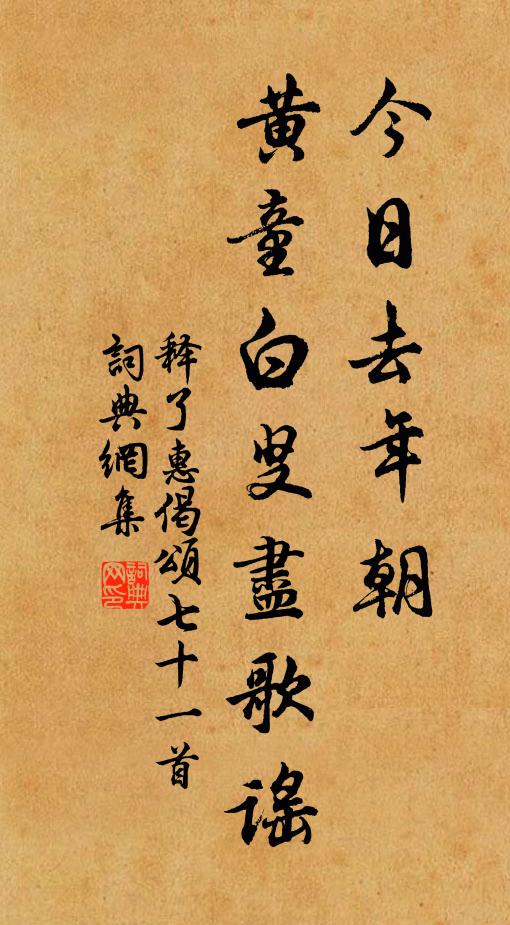 今日去年朝
黄童白叟盡歌謠
释了惠偈頌七十一首
詞典網集
詞典网印